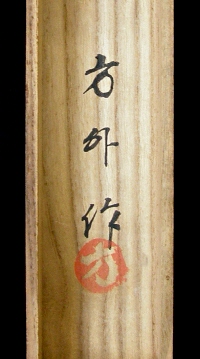 方外作
方